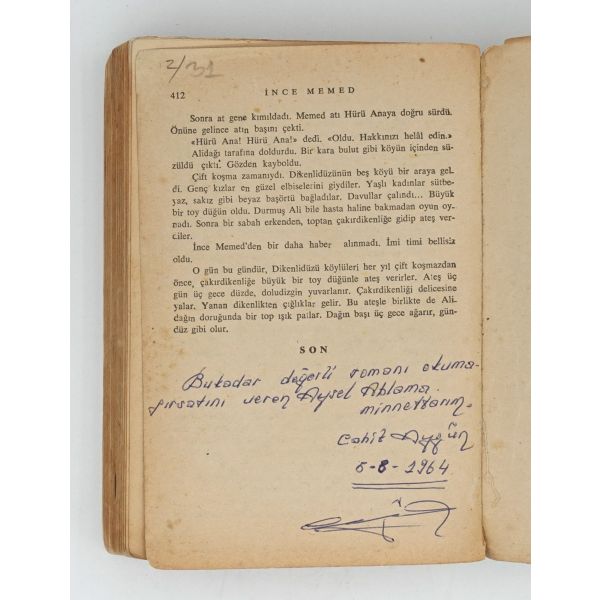 2/31
412 İNCE MEMED
Sonra at gene kımıldadı. Memed atı Hürü Anaya doğru sürdü.
Önüne gelince atın başını çekti.
«Hürü Ana! Hürü Ana!» dedi. «Oldu. Hakkınızı helâl edin.»
Alidağı tarafına doldurdu. Bir kara bulut gibi köyün içinden sü-
züldü çıktı. Gözden kayboldu.
Çift koşma zamanıydı. Dikenlidüzünün beş köyü bir araya gel-
di. Genç kızlar en güzel elbiselerini giydiler. Yaşlı kadınlar sütbe-
yaz, sakız gibi beyaz başörtü bağladılar. Davullar çalındı... Büyük
bir toy düğün oldu. Durmuş Ali bile hasta haline bakmadan oyun oy-
nadı. Sonra bir sabah erkenden, toptan çakırdikenliğe gidip ateş ver-
diler.
İnce Memed'den bir daha haber alınmadı. İmi timi bellisiz
oldu.
O gün bu gündür, Dikenlidüzü köylüleri her yıl çift koşmazdan
önce, çakırdikenliğe büyük bir toy düğünle ateş verirler. Ateş üç
gün üç gece düzde, doludizgin yuvarlanır. Çakırdikenliği delicesine
yalar. Yanan dikenlikten çığlıklar gelir. Bu ateşle birlikte de Ali-
dağın doruğunda bir top ışık patlar. Dağın başı üç gece ağarır, gün-
düz gibi olur.
SON
Bukadar değerli romanı okuma
fırsatını veren Aysel Ablama
minnettarım.
Cahit Aygün
5-8-1964